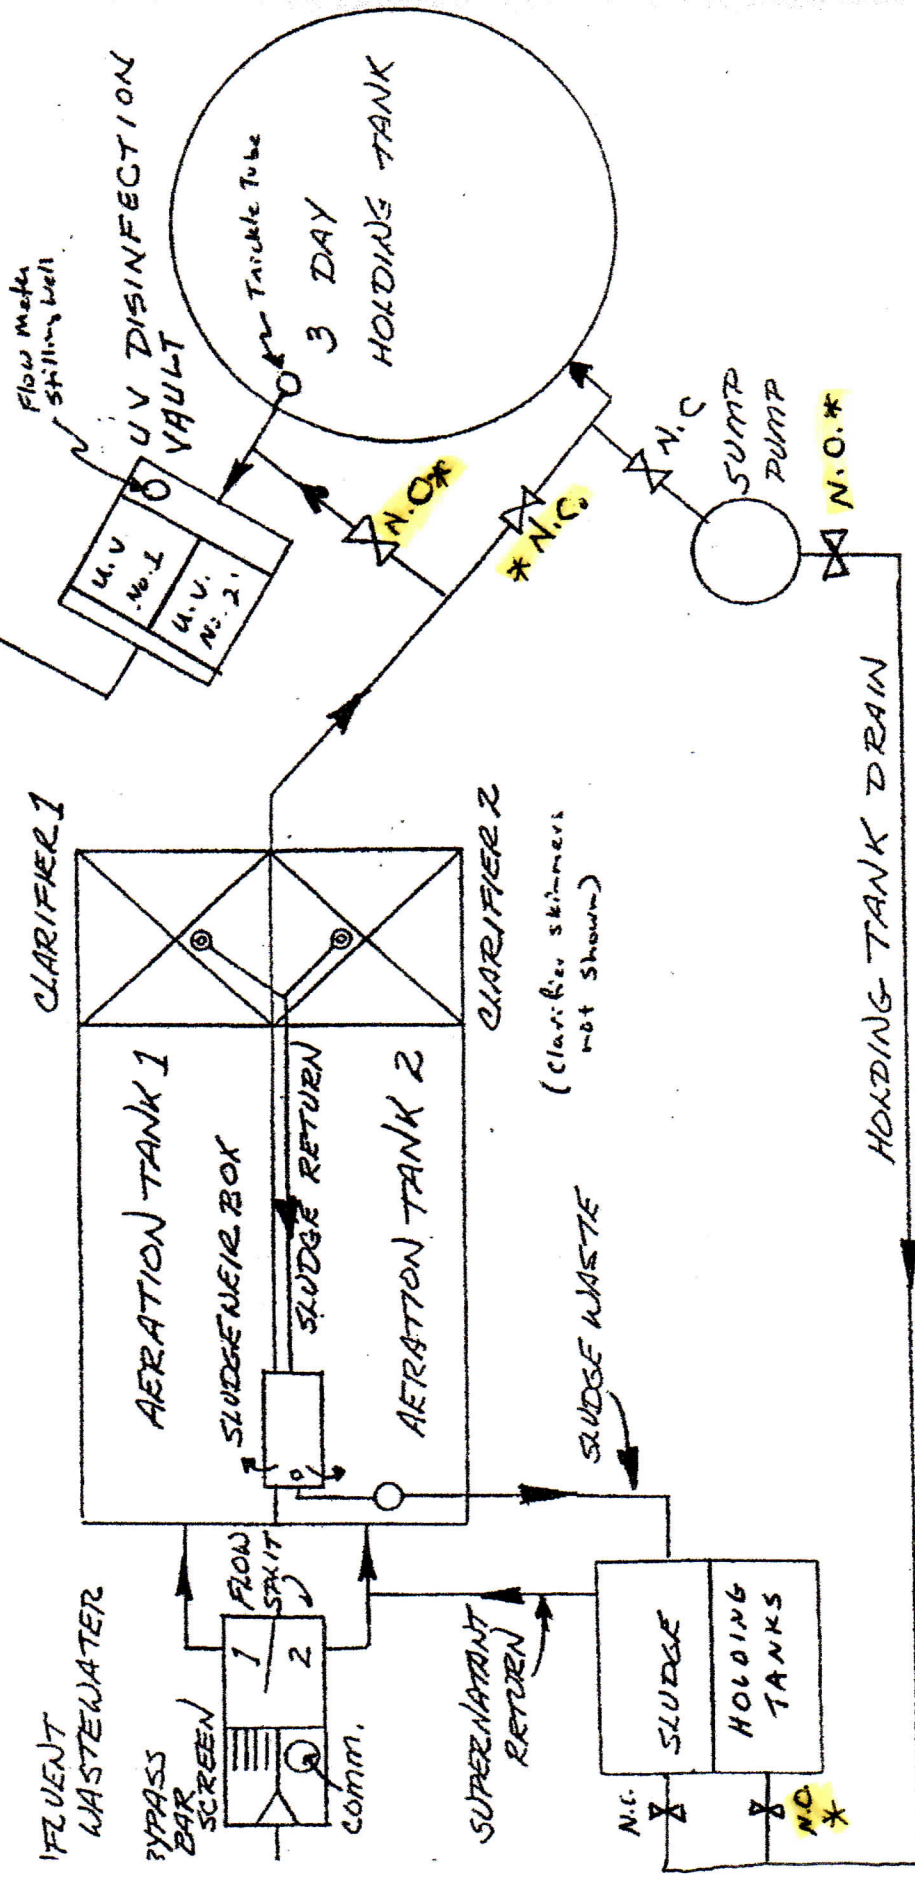 'FLUENT
WASTEWATER
YPASS
BAR
SCREEN
COMM.
1
2
FLOW
SPLIT
AERATION TANK 1
SLUDGE WEIR BOX
SLUDGE RETURN
AERATION TANK 2
CLARIFIER 1
CLARIFIER 2
(Clarifier skimmers
not shown)
SUPERNATANT
RETURN
SLUDGE WASTE
SLUDGE
HOLDING
TANKS
N.C.
N.O.
*
HOLDING TANK DRAIN
Flow Meter
Stilling Well
UV DISINFECTION
VAULT
U.V
No. 1
U.V.
No. 2
Trickle Tube
3 DAY
HOLDING TANK
N.O*
* N.C.
N.C
SUMP
PUMP
N.O.*